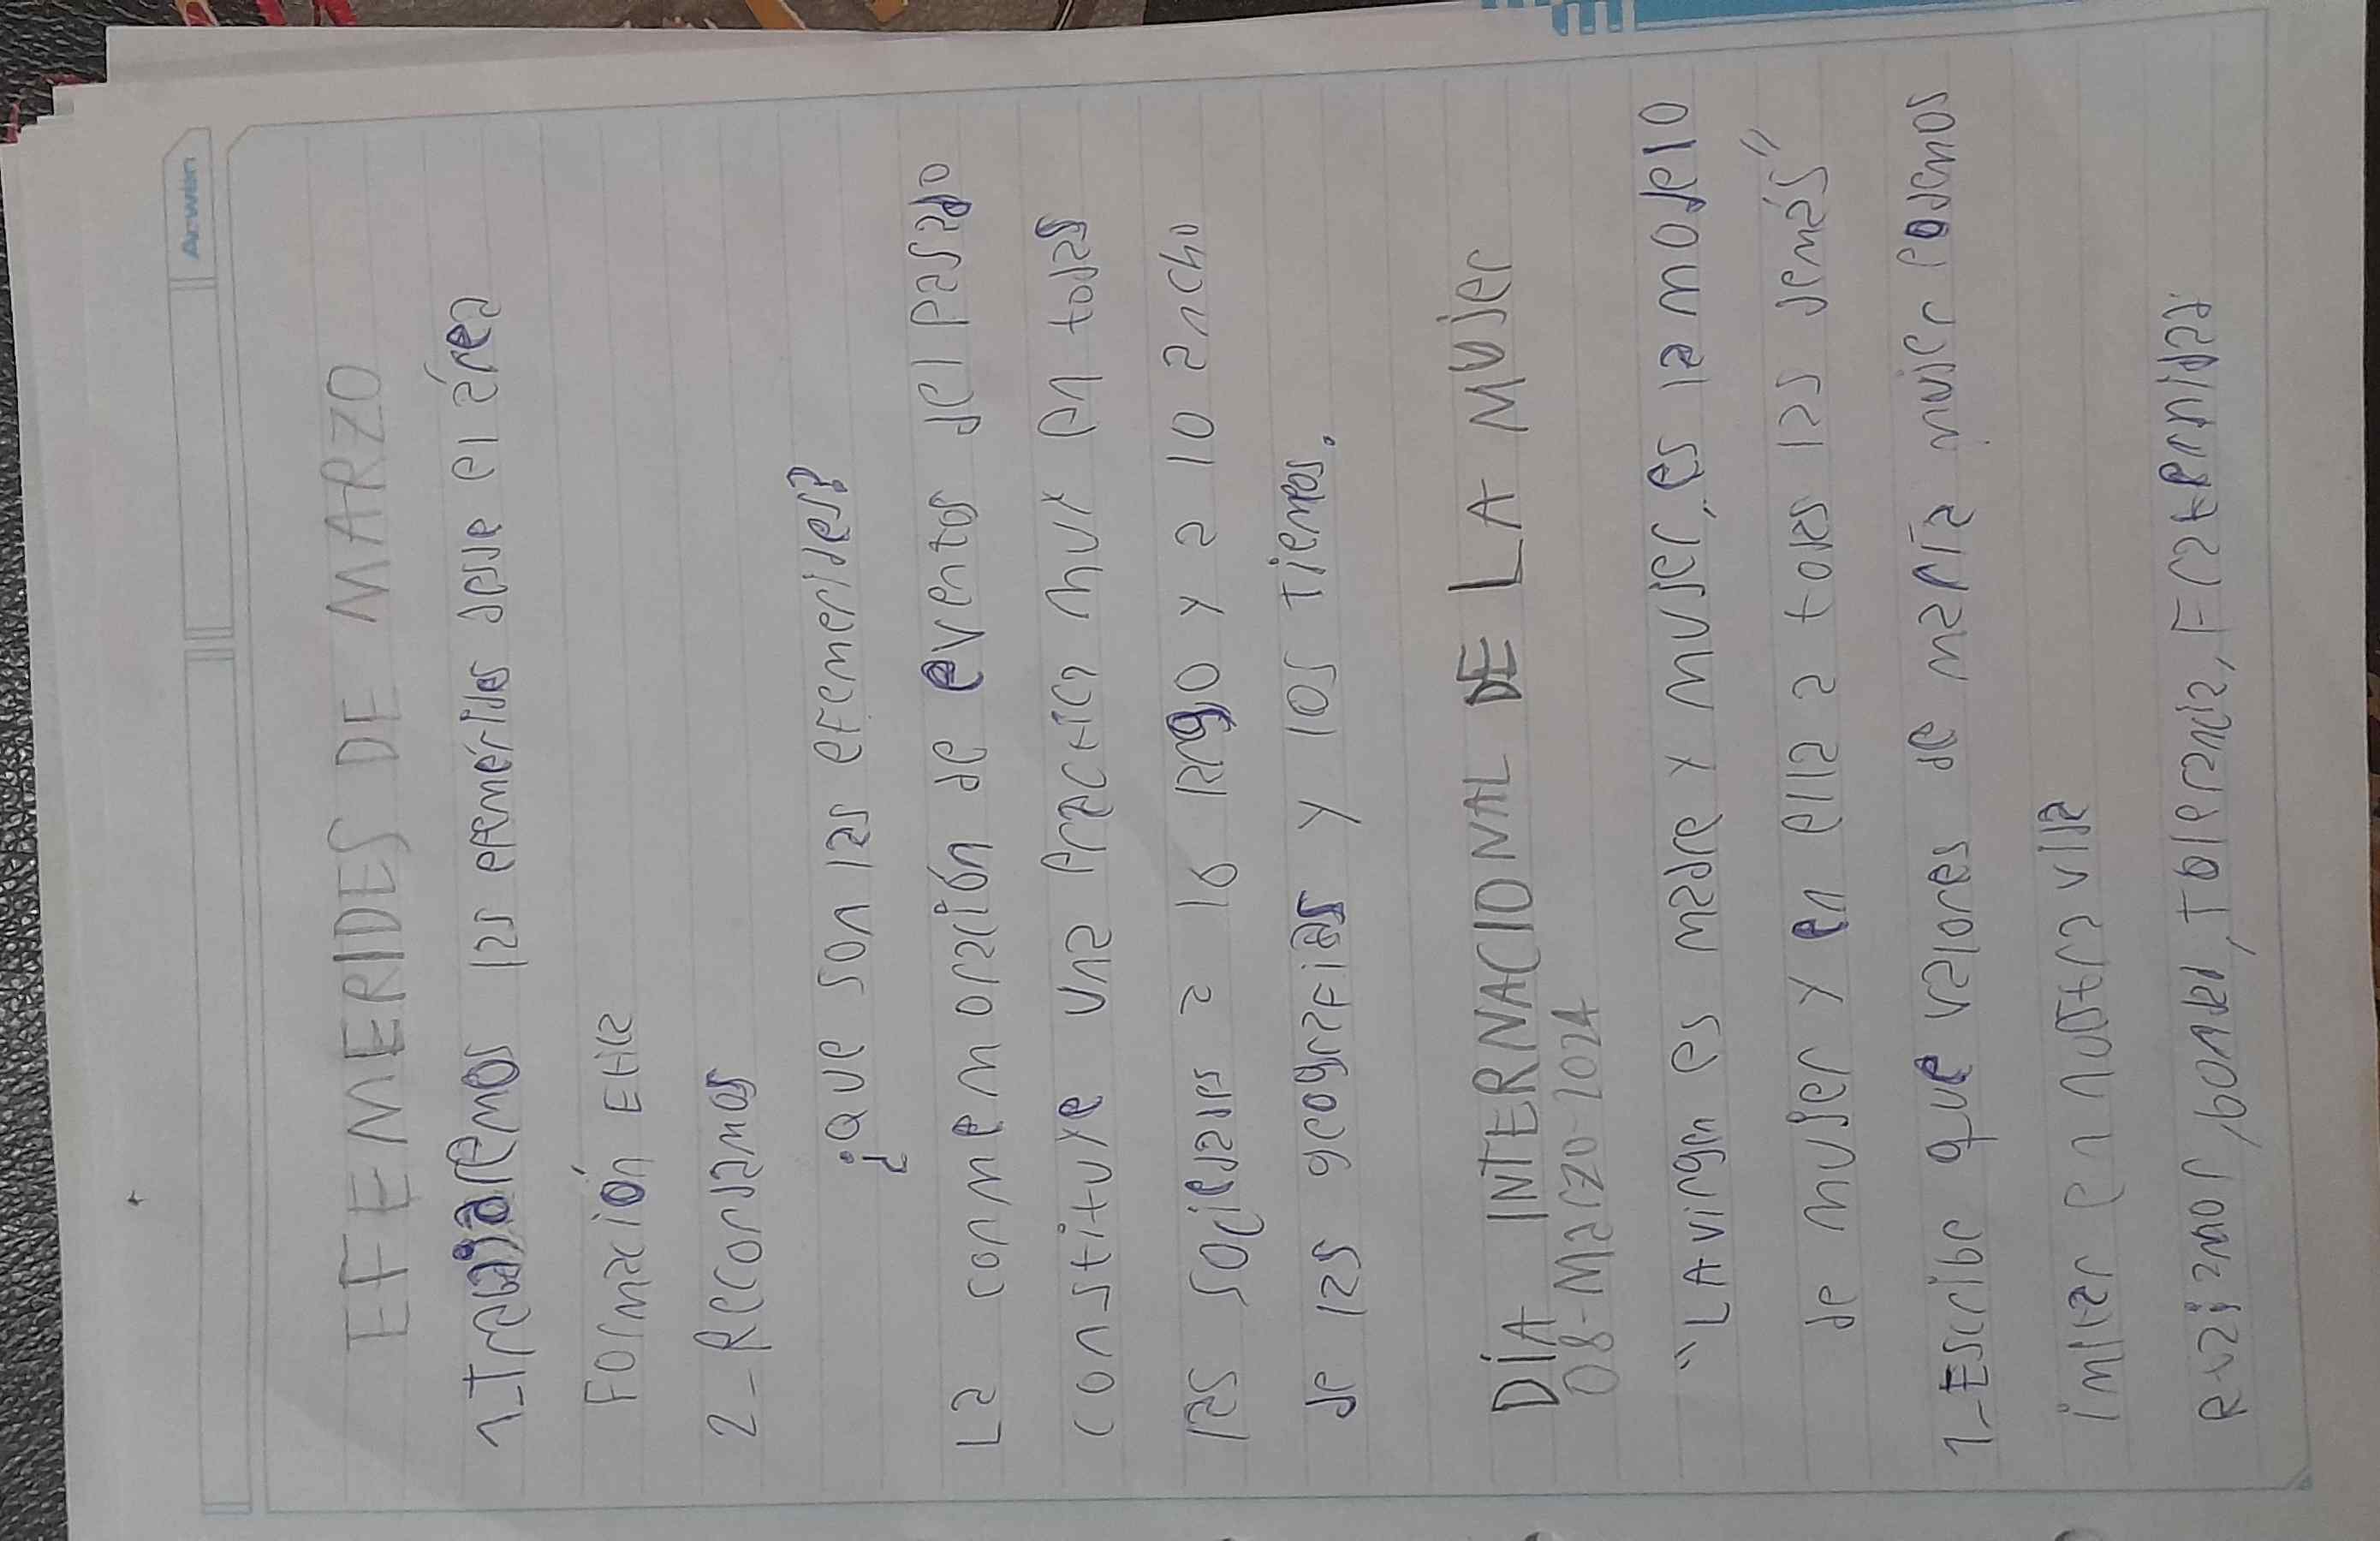 Arwen
EFEMERIDES DE MARZO
1-Trabajaremos las efemérides desde el área
Formación Etica
2-Recordamos
¿Que son las efemerides?
La conmemoración de eventos del pasado
constituye una practica muy en todas
las sociedades a lo largo y a lo ancho
de las geografias y los tiempos.
DÍA INTERNACIONAL DE LA MUJER
08-Marzo-2024
"LA virgen es madre y mujer, es la modelo
de mujer y en ella a todas las demás"
1-Escribe que valores de maria mujer podemos
imitar en nuestra vida
R-Va: amor, bondad, Tolerancia, Fraternidad.